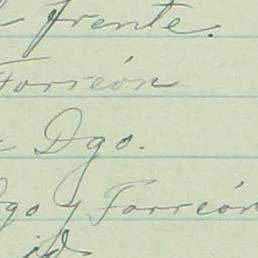 frente.
Torreón
Dgo.
Dgo y Torreón
id